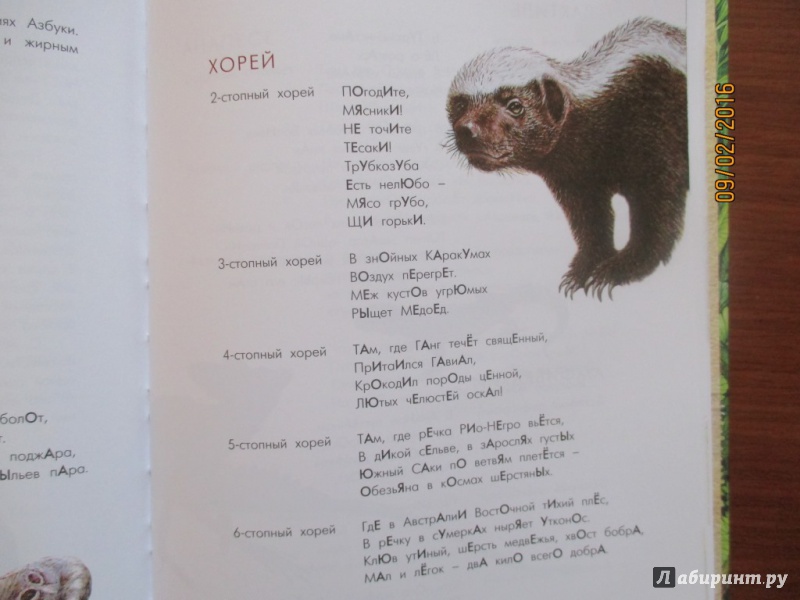 ях Азбуки.
и жирным
болОт,
т.
поджАра,
Ыльев пАра.
ХОРЕЙ
2-стопный хорей
ПОгодИте,
МЯсникИ!
НЕ точИте
ТЕсакИ!
ТрУбкозУба
Есть нелЮбо –
МЯсо грУбо,
ЩИ горькИ.
3-стопный хорей
В знОйных КАракУмах
ВОздух пЕрегрЕт.
МЕж кустОв угрЮмых
РЫщет МЕдоЕд.
4-стопный хорей
ТАм, где ГАнг течЁт свящЕнный,
ПрИтаИлся ГАвиАл,
КрОкодИл порОды цЕнной,
ЛЮтых чЕлюстЕй оскАл!
5-стопный хорей
ТАм, где рЕчка РИо-НЕгро вьЁтся,
В дИкой сЕльве, в зАрослЯх густЫх
Южный САки пО ветвЯм плетЁтся –
ОбезьЯна в кОсмах шЕрстянЫх.
6-стопный хорей
ГдЕ в АвстрАлиИ ВостОчной тИхий плЁс,
В рЕчку в сУмеркАх ныряЕт УтконОс.
КлЮв утИный, шЕрсть медвЕжья, хвОст бобрА,
МАл и лЁгок – двА килО всегО добрА.
09/02/2016
Лабиринт.ру